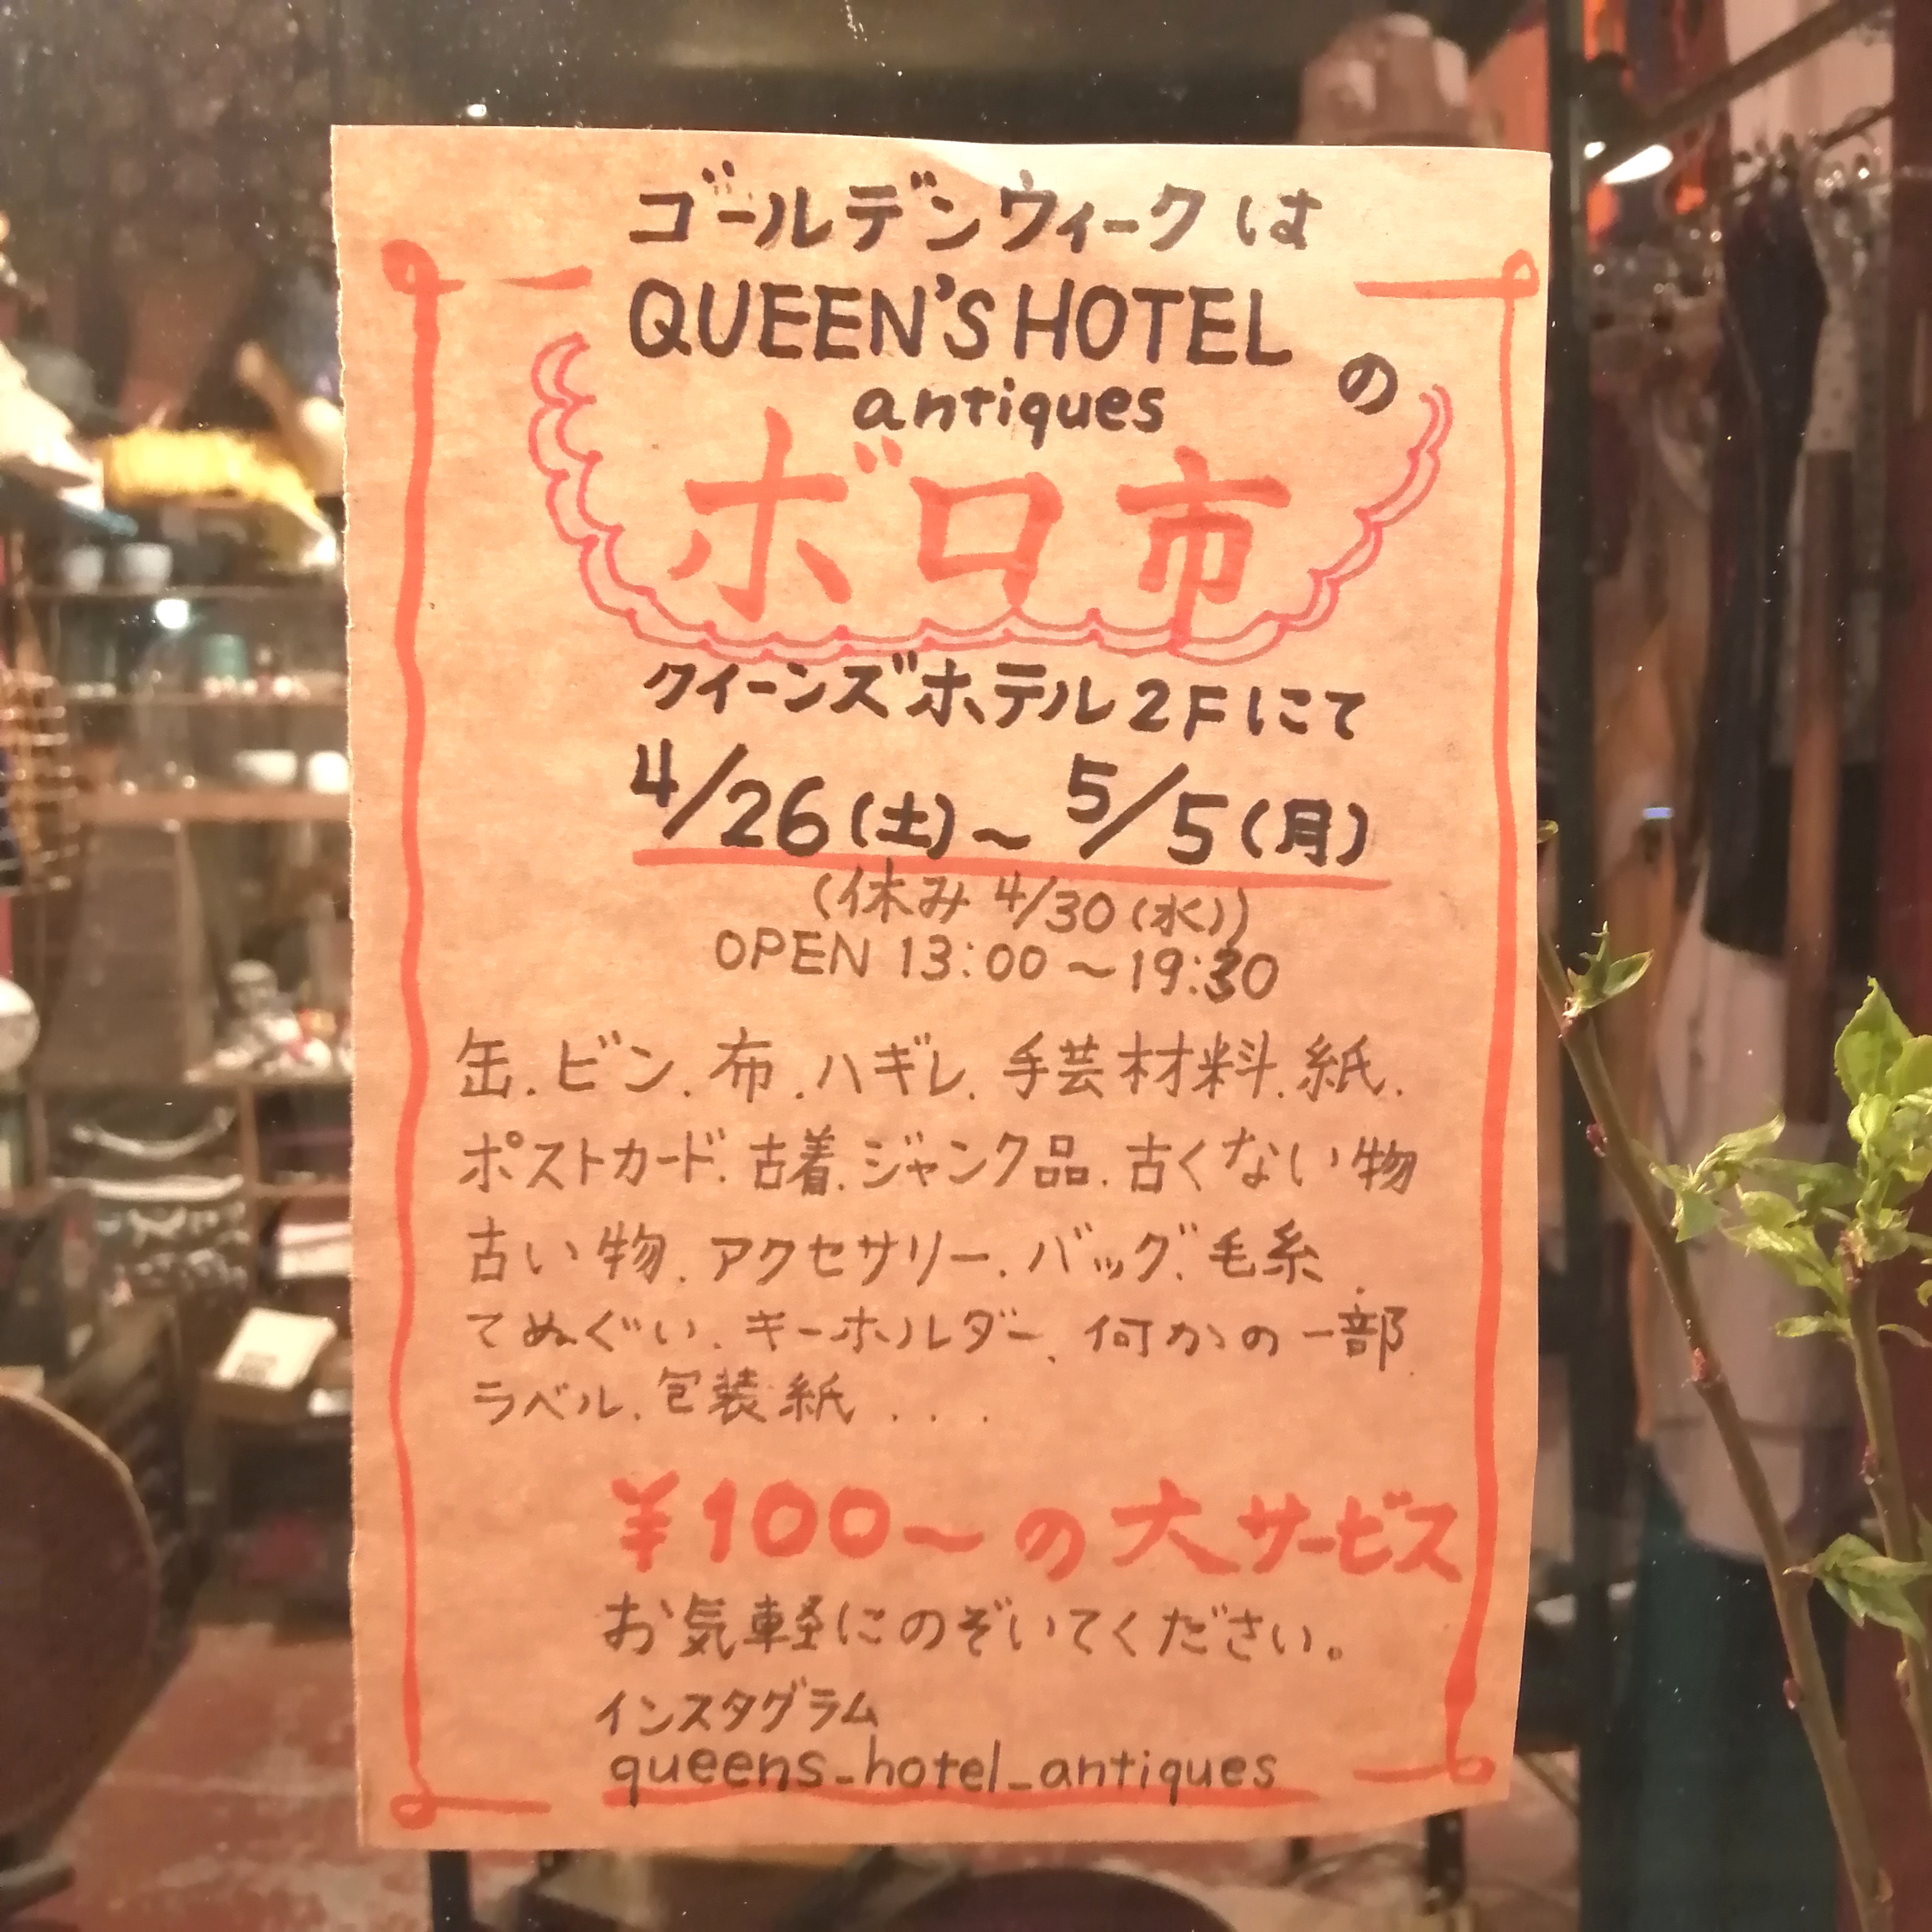 ゴールデンウィークは
QUEEN'S HOTEL
antiques の
ボロ市
クイーンズホテル2Fにて
4/26(土)~5/5(月)
(休み 4/30(水))
OPEN 13:00~19:30
缶.ビン.布.ハギレ.手芸材料.紙.
ポストカード.古着.ジャンク品.古くない物
古い物.アクセサリー.バッグ.毛糸.
てぬぐい.キーホルダー.何かの一部.
ラベル.包装紙...
¥100~の大サービス
お気軽にのぞいてください。
インスタグラム
queens_hotel_antiques